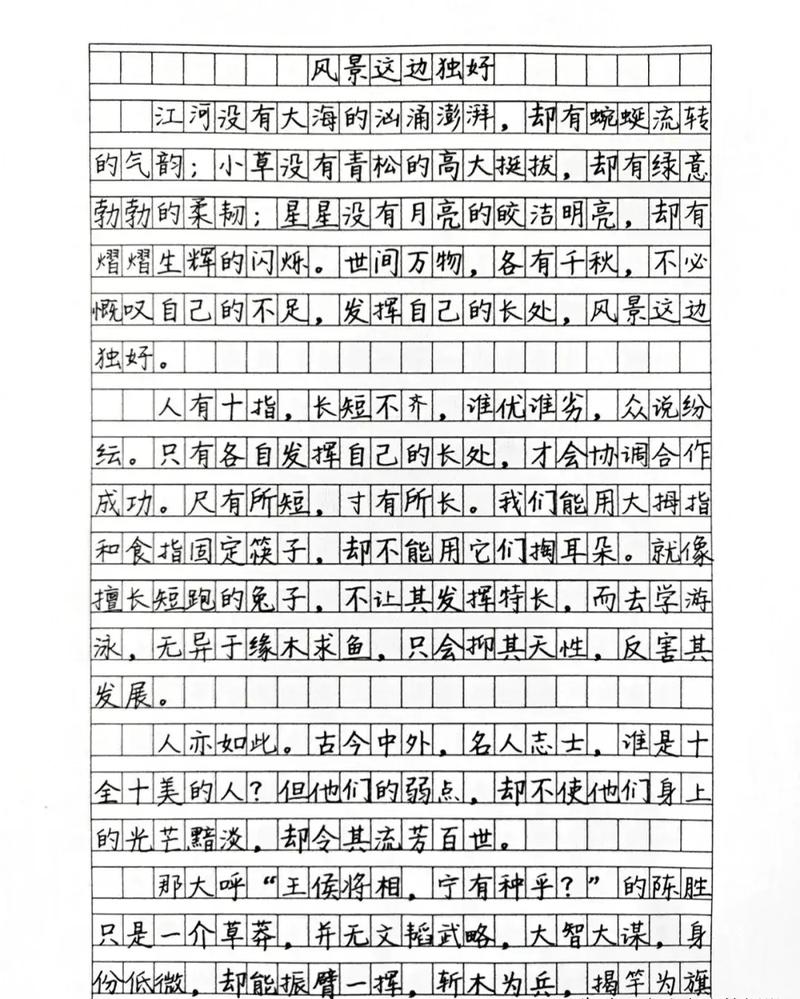 风景这边独好
江河没有大海的汹涌澎湃，却有蜿蜒流转
的气韵；小草没有青松的高大挺拔，却有绿意
勃勃的柔韧；星星没有月亮的皎洁明亮，却有
熠熠生辉的闪烁。世间万物，各有千秋，不必
慨叹自己的不足，发挥自己的长处，风景这边
独好。
人有十指，长短不齐，谁优谁劣，众说纷
纭。只有各自发挥自己的长处，才会协调合作
成功。尺有所短，寸有所长。我们能用大拇指
和食指固定筷子，却不能用它们掏耳朵。就像
擅长短跑的兔子，不让其发挥特长，而去学游
泳，无异于缘木求鱼，只会抑其天性，反害其
发展。
人亦如此。古今中外，名人志士，谁是十
全十美的人？但他们的弱点，却不使他们身上
的光芒黯淡，却令其流芳百世。
那大呼“王侯将相，宁有种乎？”的陈胜
只是一介草莽，并无文韬武略，大智大谋，身
份低微，却能振臂一挥，斩木为兵，揭竿为旗